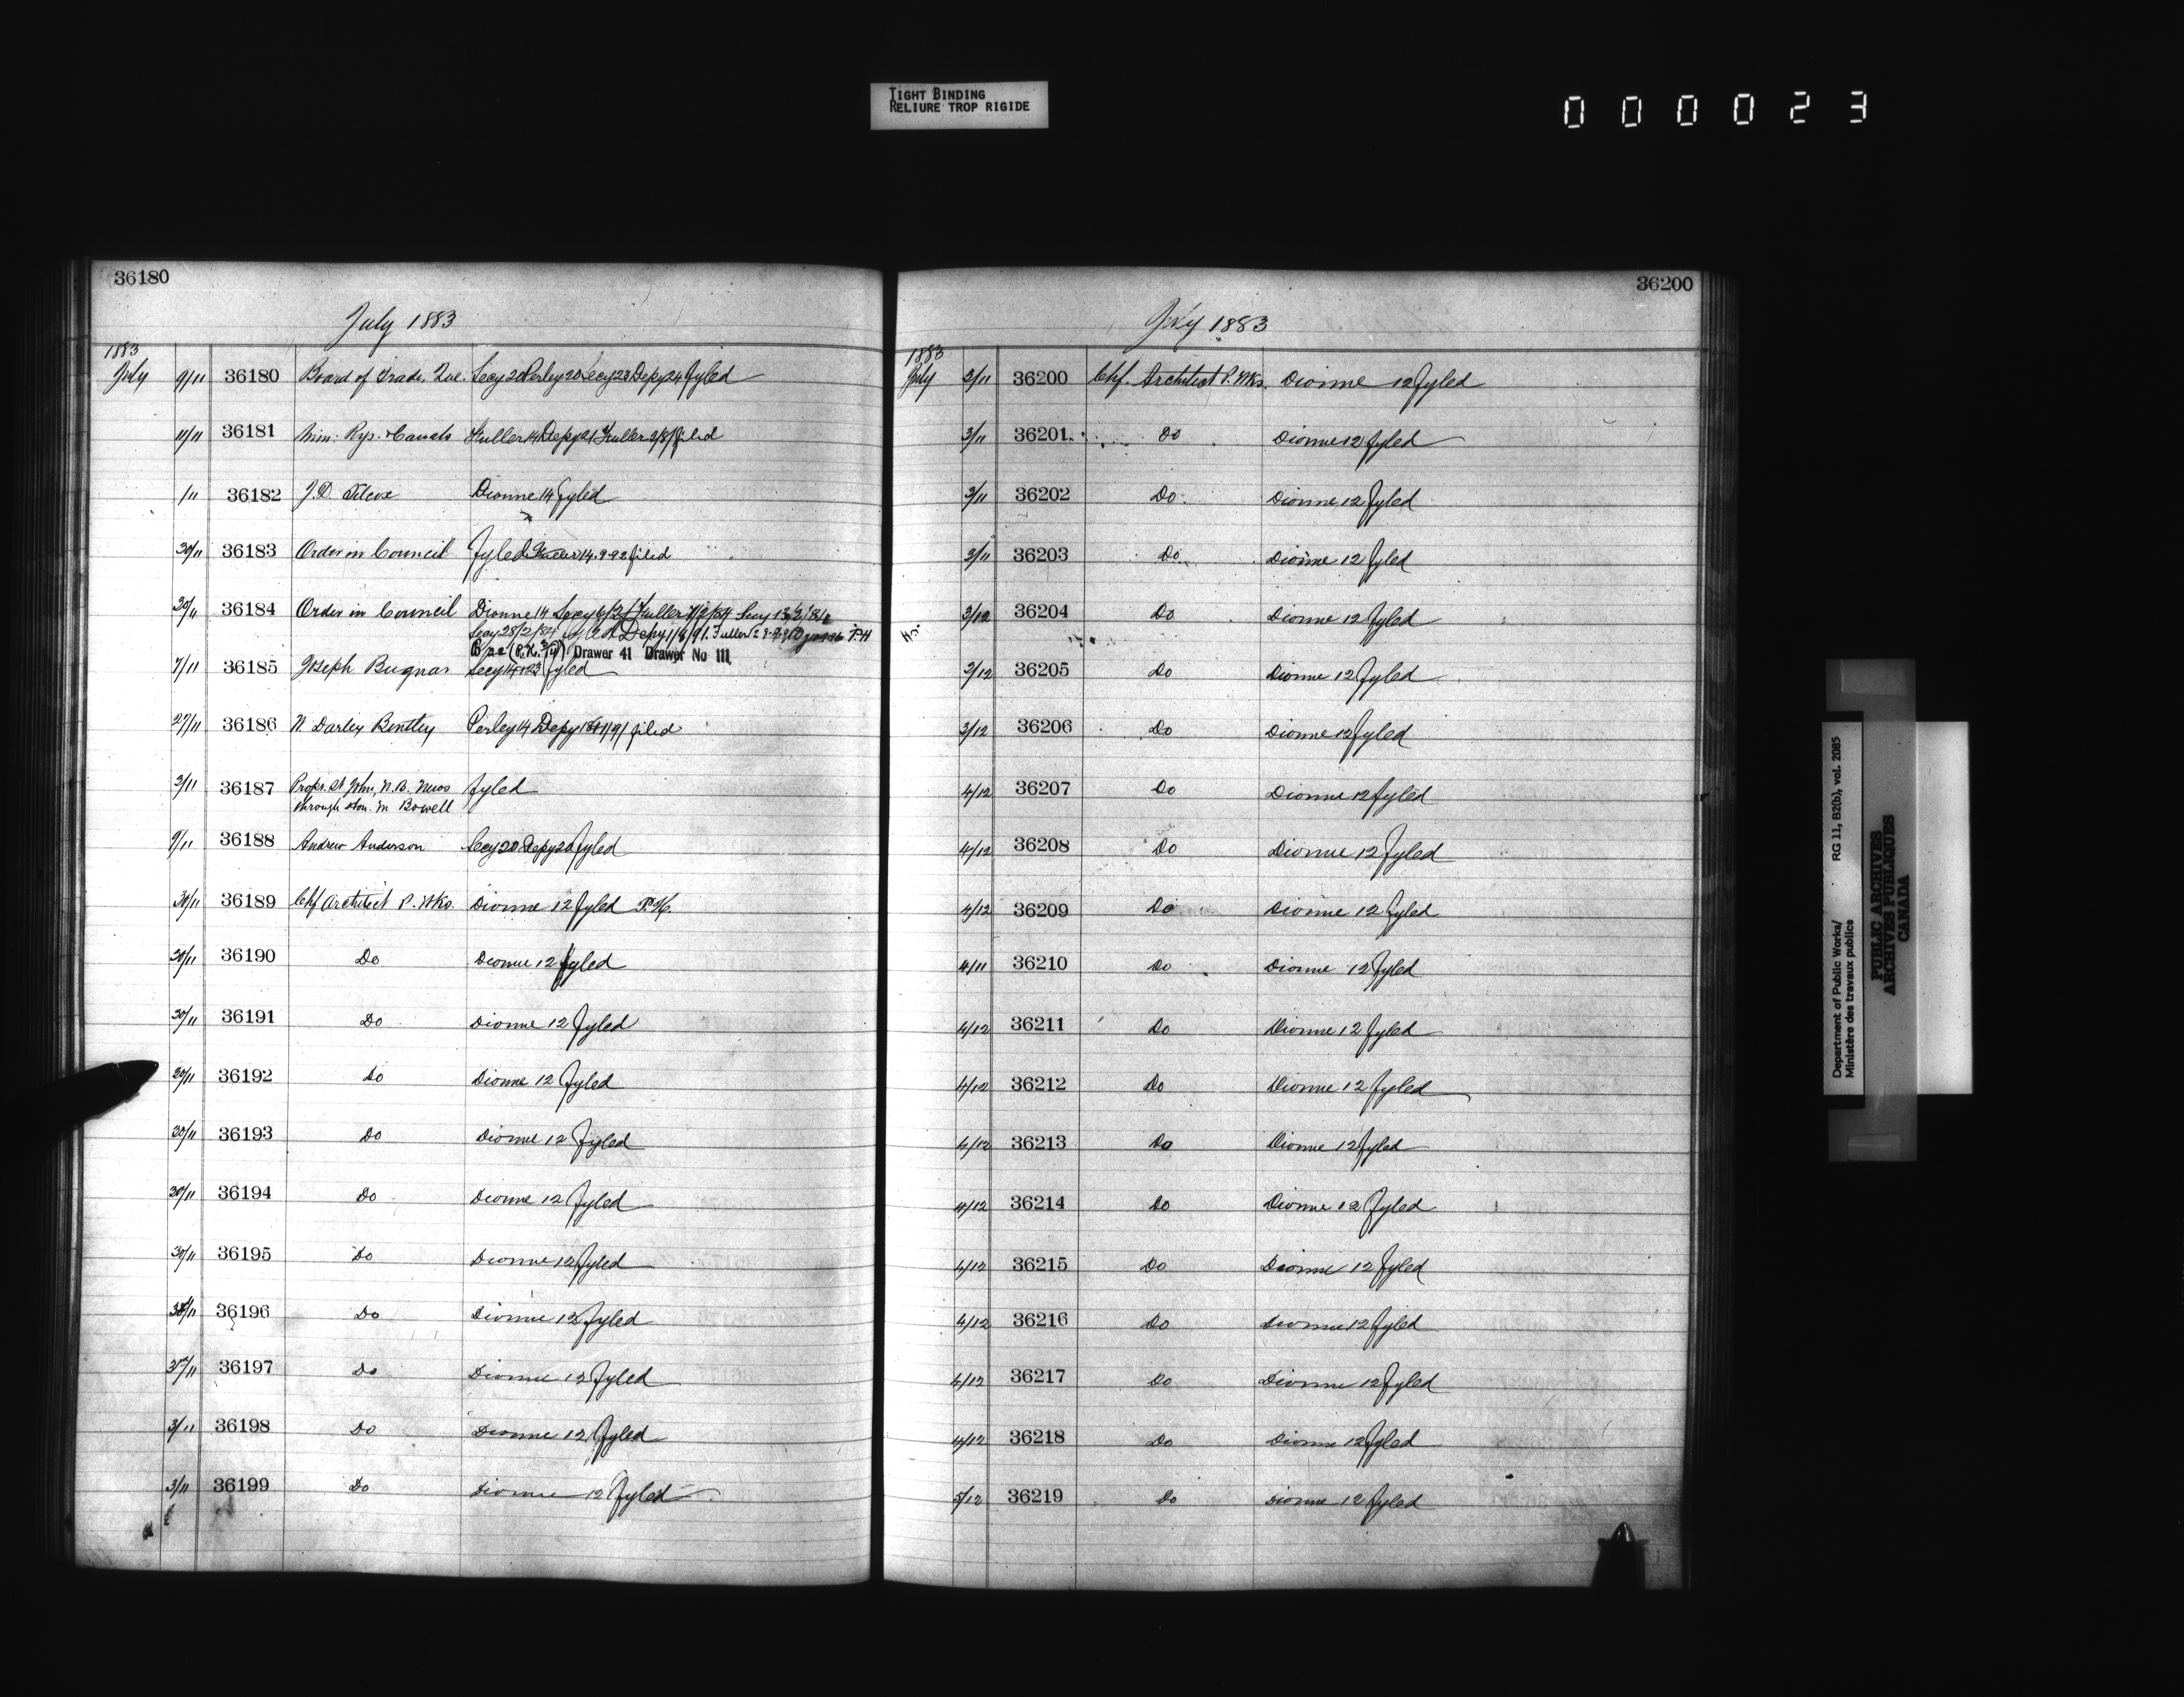 TIGHT BINDING
RELIURE TROP RIGIDE
000023
36180
July 1883
1883
July 9/11 36180 Board of Trade, Que. Secy 20 Perley 20 Secy 23 Depy 24 Fyled
11/11 36181 Min: Rys. & Canals Fuller 14 Depy 21 Fuller 9/8/ filed
1/11 36182 J.D. Silcox Dionne 14 Fyled
30/11 36183 Order in Council Fyled 14.9.92 filed
30/11 36184 Order in Council Dionne 14 Secy Fuller Secy
Secy 28/2/84 Depy 1/8/91. Fuller P.H
Drawer 41 Drawer No 111
7/11 36185 Joseph Bugnar Secy 14 23 fyled
27/11 36186 N. Darley Bentley Perley 14 Depy filed
3/11 36187 Proprs. St John, N.B. News Fyled
through Hon. M Bowell
9/11 36188 Andrew Anderson Secy 20 Depy 20 Fyled
30/11 36189 Chf Architect P. Wks. Dionne 12 Fyled P.H.
30/11 36190 Do Dionne 12 fyled
30/11 36191 Do Dionne 12 Fyled
30/11 36192 Do Dionne 12 Fyled
30/11 36193 Do Dionne 12 Fyled
30/11 36194 Do Dionne 12 Fyled
30/11 36195 Do Dionne 12 Fyled
36196 Do Dionne 12 Fyled
36197 Do Dionne 12 Fyled
3/11 36198 Do Dionne 12 Fyled
3/11 36199 Do Dionne 12 Fyled
36200
July 1883
1883
July 3/11 36200 Chf. Architect P. Wks. Dionne 12 Fyled
3/11 36201 Do Dionne 12 Fyled
3/11 36202 Do Dionne 12 Fyled
3/11 36203 Do Dionne 12 Fyled
3/12 36204 Do Dionne 12 Fyled
3/12 36205 Do Dionne 12 Fyled
3/12 36206 Do Dionne 12 Fyled
4/12 36207 Do Dionne 12 Fyled
4/12 36208 Do Dionne 12 Fyled
4/12 36209 Do Dionne 12 Fyled
4/11 36210 Do Dionne 12 Fyled
4/12 36211 Do Dionne 12 Fyled
4/12 36212 Do Dionne 12 Fyled
4/12 36213 Do Dionne 12 Fyled
4/12 36214 Do Dionne 12 Fyled
4/12 36215 Do Dionne 12 Fyled
4/12 36216 Do Dionne 12 Fyled
4/12 36217 Do Dionne 12 Fyled
4/12 36218 Do Dionne 12 Fyled
5/12 36219 Do Dionne 12 Fyled
Department of Public Works/ RG 11, B2(b), vol. 2085
Ministère des travaux publics
PUBLIC ARCHIVES
ARCHIVES PUBLIQUES
CANADA